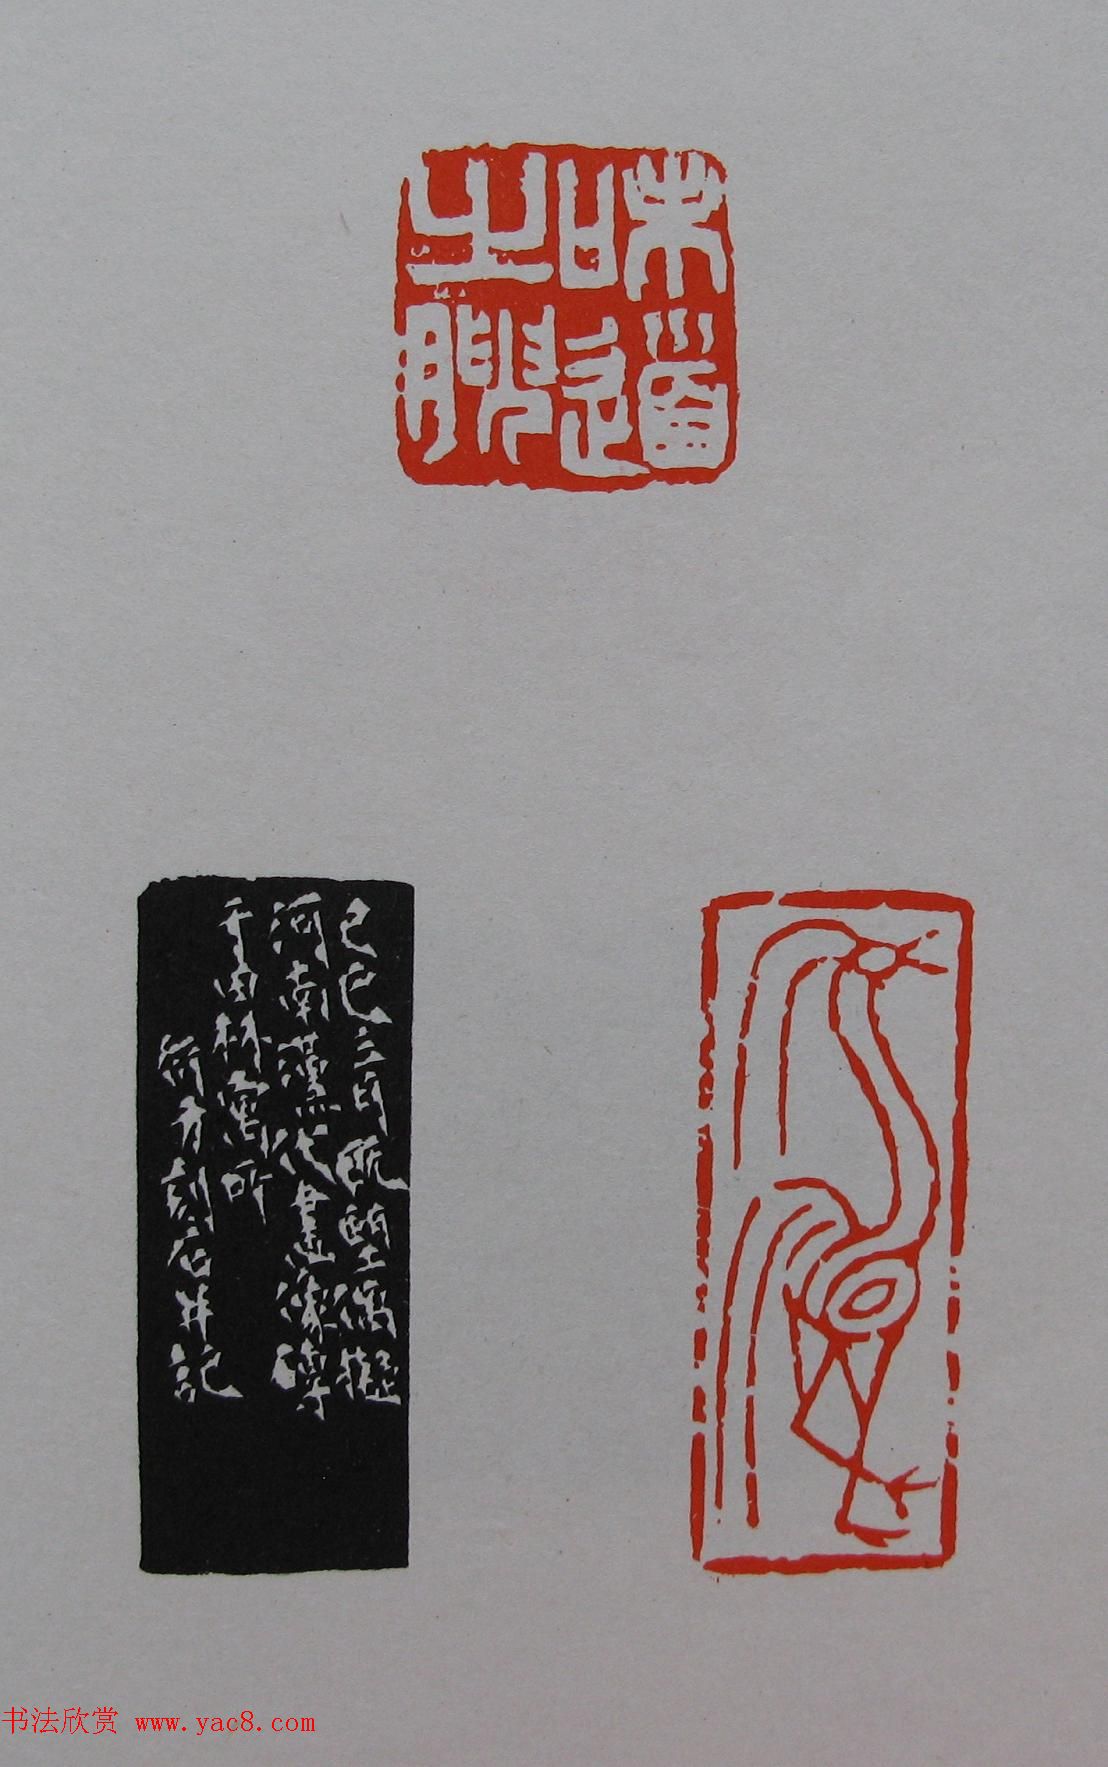 味道
之腴
己巳三月既望偶
河南漢代畫像磚
于林寓所
衍方刻石并記
书法欣赏 www.yac8.com